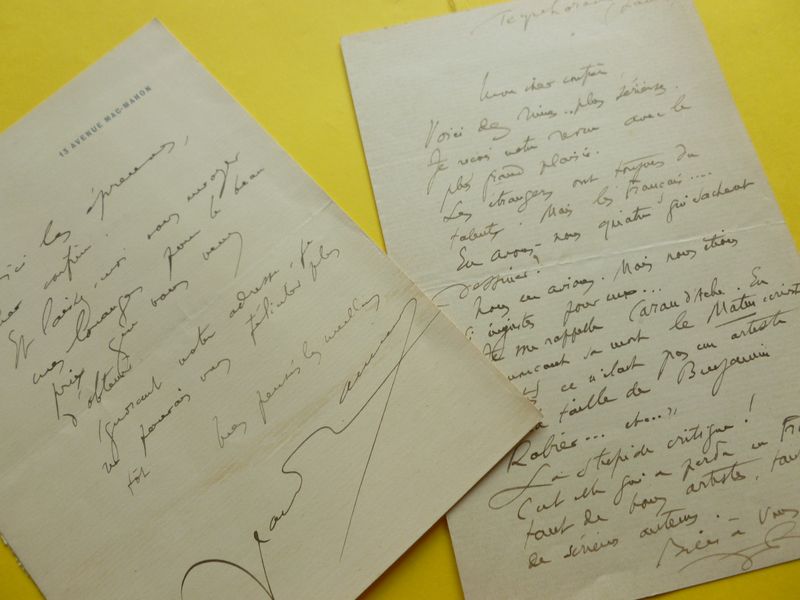 13 AVENUE MAC-MAHON
Voici les épreuves,
cher confrère.
Et laissez-moi vous envoyer
mes louanges pour le beau
prix que vous venez
d'obtenir.
Ignorant votre adresse je
ne pouvais vous féliciter plus
tôt
Mes pensées les meilleures
Jean
Mon cher confrère,
Voici des lignes.. plus sérieuses.
Je reçois votre revue avec le
plus grand plaisir.
Les étrangers ont toujours du
talent. Mais les Français....
En avons-nous quatre qui sachent
dessiner?
Nous en avions. Mais nous étions
si injustes pour eux...
Je me rappelle Caran d'Ache. En
annonçant sa mort le Matin
ce n'était pas un artiste
la taille de Benjamin
Rabier... etc...",
La stupide critique!
C'est elle qui a perdu en
tant de bons artistes,
de sérieux auteurs.
Bien à vous